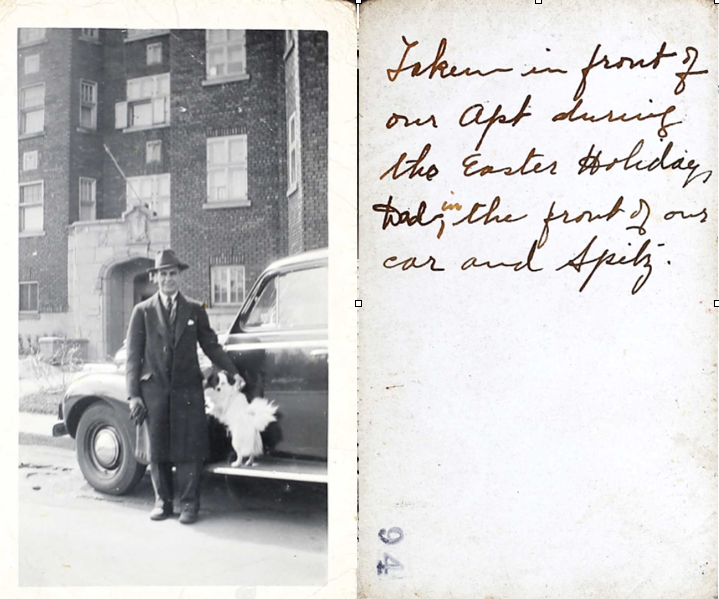 Taken in front of
our Apt during
the Easter Holidays
Dad, in the front of our
car and Spitz.
94